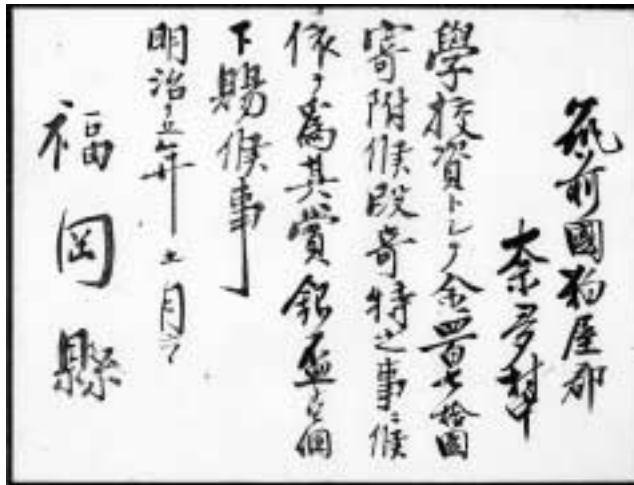 筑前國粕屋郡
奈多村中
學校資トシテ金四百七拾圓
寄附候段奇特之事ニ候
依テ為其賞銀盃壱個
下賜候事
明治 年 月
福岡縣